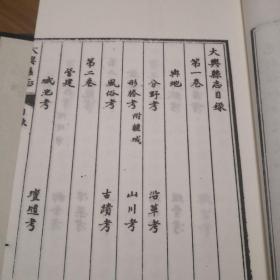 大興縣志目錄
第一卷
輿地
分野考
沿革考
形勝考 附疆域
山川考
風俗考
古蹟考
第二卷
營建
城池考
壇壝考
大興縣志
目錄